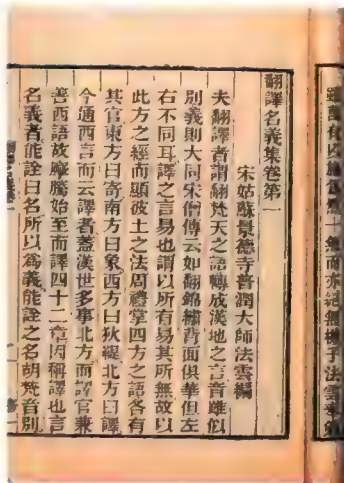 翻譯名義集卷第一
宋姑蘇景德寺普潤大師法雲編
夫翻譯者謂翻梵天之語轉成漢地之言音雖似
別義則大同宋僧傳云如翻錦繡背面俱華但左
右不同耳譯之言易也謂以所有易其所無故以
此方之經而顯彼土之法周禮掌四方之語各有
其官東方曰寄南方曰象西方曰狄鞮北方曰譯
今通西言而云譯者蓋漢世多事北方而譯官兼
善西語故摩騰始至而譯四十二章因稱譯也言
名義者能詮曰名所以為義能詮之名胡梵音別